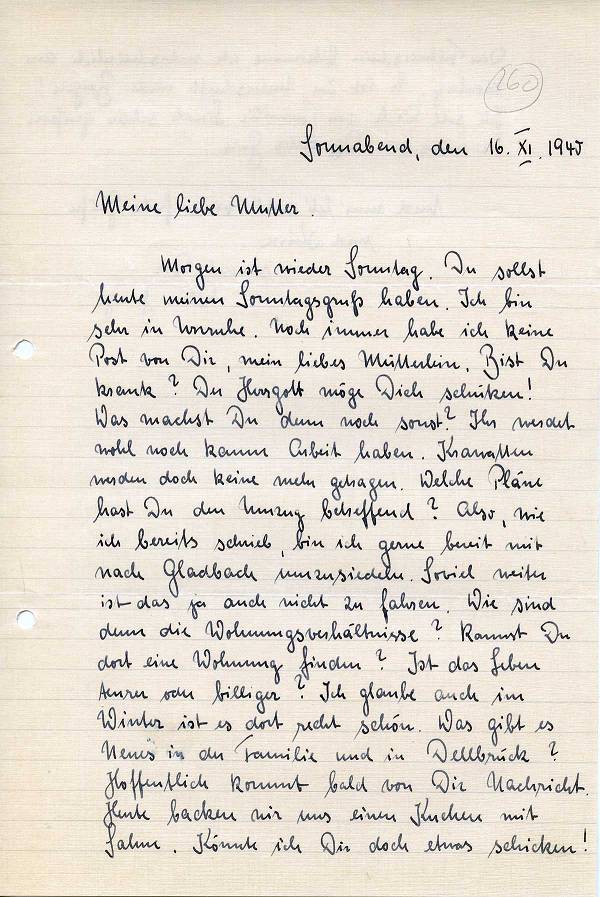 260
Sonnabend, den 16. XI. 1940
Meine liebe Mutter.
Morgen ist wieder Sonntag. Du sollst
heute meinen Sonntagsgruß haben. Ich bin
sehr in Unruhe. Noch immer habe ich keine
Post von Dir, mein liebes Mütterlein. Bist Du
krank? Der Herrgott möge Dich schützen!
Was machst Du denn noch sonst? Ihr werdet
wohl noch kaum Arbeit haben. Krawatten
werden doch keine mehr getragen. Welche Pläne
hast Du den Umzug betreffend? Also, wie
ich bereits schrieb, bin ich gerne bereit mit
nach Gladbach umzusiedeln. Soviel weiter
ist das ja auch nicht zu fahren. Wie sind
denn die Wohnungsverhältnisse? Kannst Du
dort eine Wohnung finden? Ist das Leben
teurer oder billiger? Ich glaube auch im
Winter ist es dort recht schön. Was gibt es
Neues in der Familie und in Dellbrück?
Hoffentlich kommt bald von Dir Nachricht.
Heute backen wir uns einen Kuchen mit
Sahne. Könnte ich Dir doch etwas schicken!